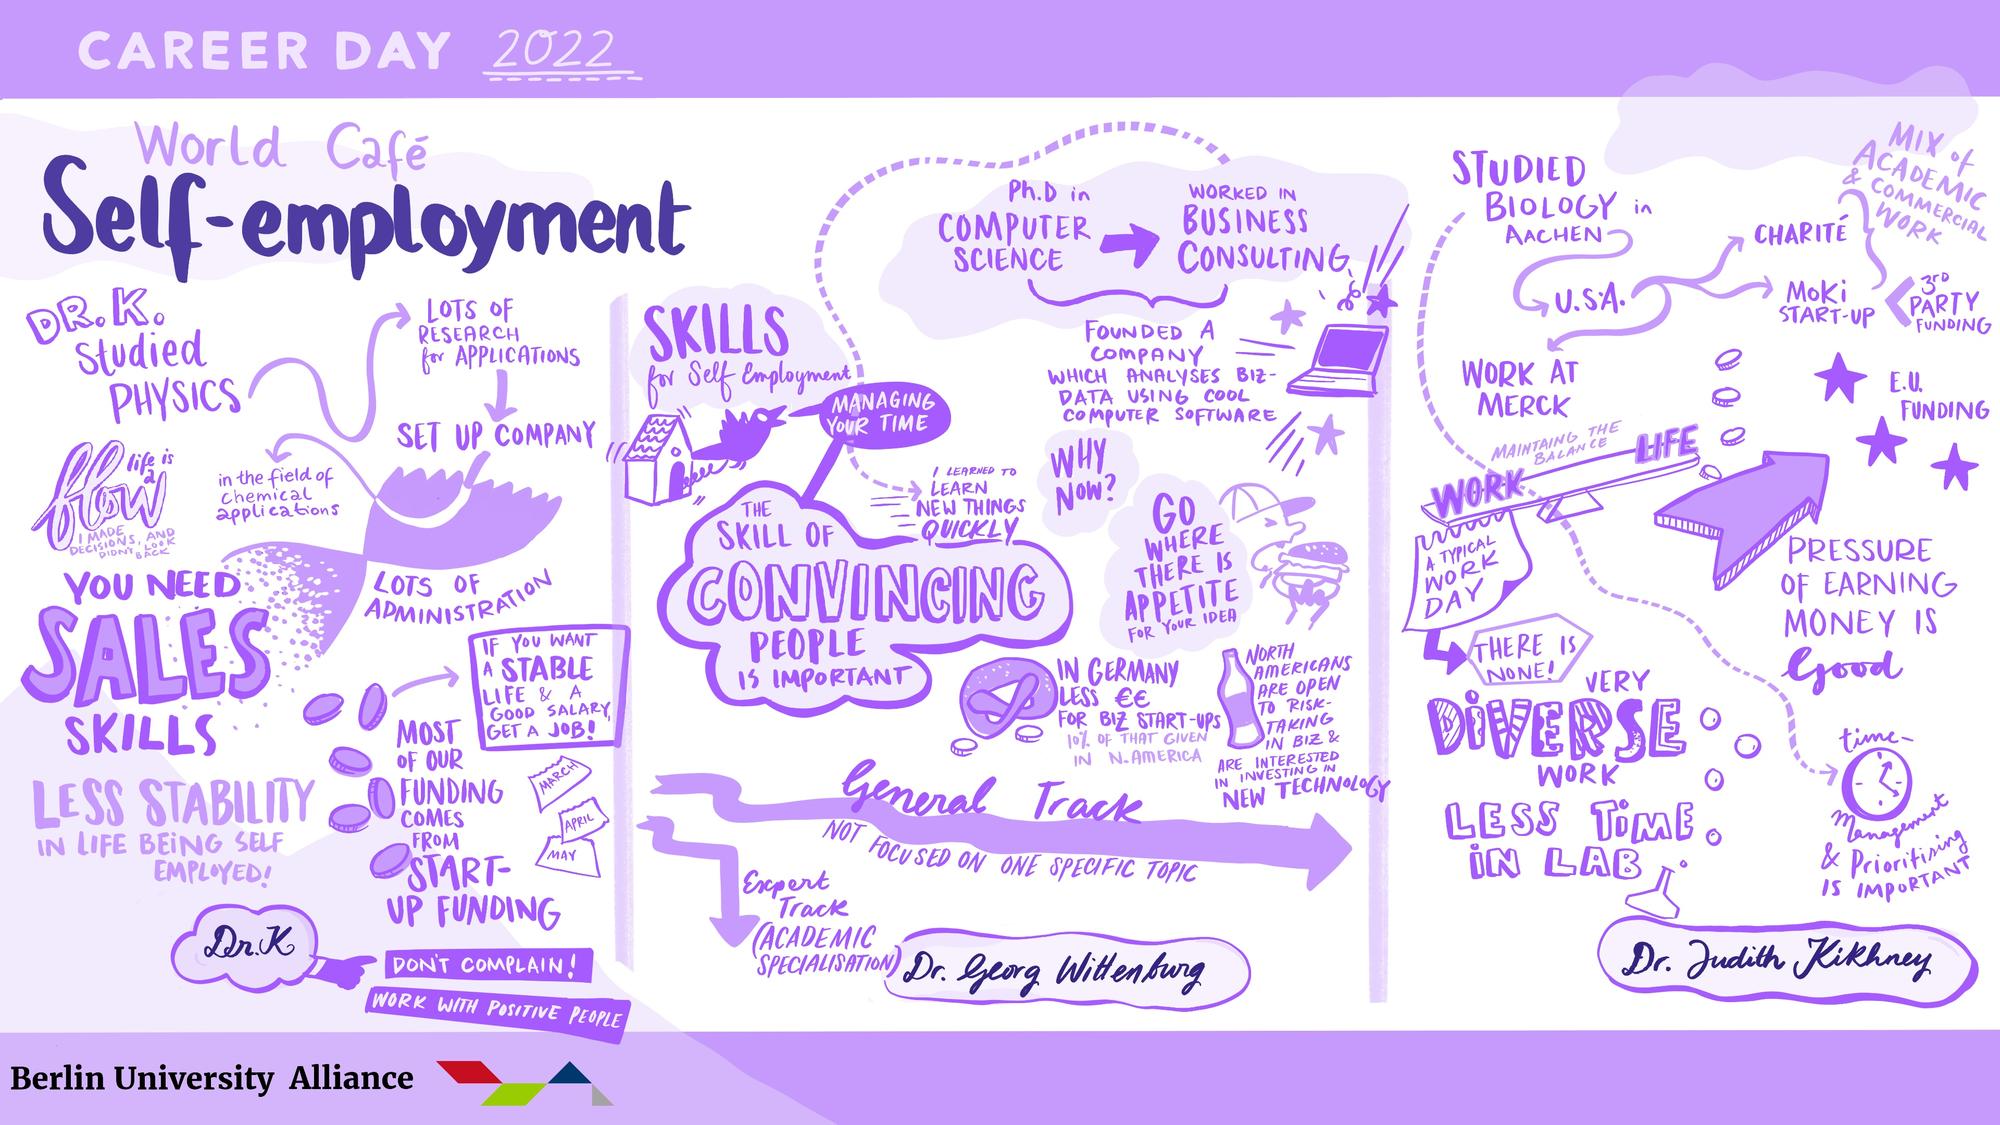 CAREER DAY 2022
World Café
Self-employment
DR. K.
Studied
PHYSICS
LOTS OF
RESEARCH
for APPLICATIONS
SET UP COMPANY
in the field of
chemical
applications
life is
a
flow
I MADE
DECISIONS, AND
DIDN'T LOOK
BACK
LOTS OF
ADMINISTRATION
YOU NEED
SALES
SKILLS
IF YOU WANT
A STABLE
LIFE & A
GOOD SALARY,
GET A JOB!
LESS STABILITY
IN LIFE BEING SELF
EMPLOYED!
MOST
OF OUR
FUNDING
COMES
FROM
START-
UP FUNDING
MARCH
APRIL
MAY
Dr. K
DON'T COMPLAIN!
WORK WITH POSITIVE PEOPLE
SKILLS
for Self Employment
MANAGING
YOUR TIME
I LEARNED TO
LEARN
NEW THINGS
QUICKLY
THE
SKILL OF
CONVINCING
PEOPLE
IS IMPORTANT
Ph.D in
COMPUTER
SCIENCE
WORKED IN
BUSINESS
CONSULTING
FOUNDED A
COMPANY
WHICH ANALYSES BIZ-
DATA USING COOL
COMPUTER SOFTWARE
WHY
NOW?
GO
WHERE
THERE IS
APPETITE
FOR YOUR IDEA
IN GERMANY
LESS €€
FOR BIZ START-UPS
10% OF THAT GIVEN
IN N. AMERICA
NORTH
AMERICANS
ARE OPEN
TO RISK-
TAKING
IN BIZ &
ARE INTERESTED
IN INVESTING IN
NEW TECHNOLOGY
General Track
NOT FOCUSED ON ONE SPECIFIC TOPIC
Expert
Track
(ACADEMIC
SPECIALISATION)
Dr. Georg Wittenburg
STUDIED
BIOLOGY in
AACHEN
U.S.A.
CHARITÉ
MIX of
ACADEMIC
& COMMERCIAL
WORK
MOKI
START-UP
3RD
PARTY
FUNDING
WORK AT
MERCK
E.U.
FUNDING
MAINTAING THE
BALANCE
WORK
LIFE
A TYPICAL
WORK
DAY
THERE IS
NONE!
PRESSURE
OF EARNING
MONEY IS
Good
VERY
DIVERSE
WORK
LESS TIME
IN LAB
time-
Management
& Prioritising
IS IMPORTANT
Dr. Judith Kikhney
Berlin University Alliance